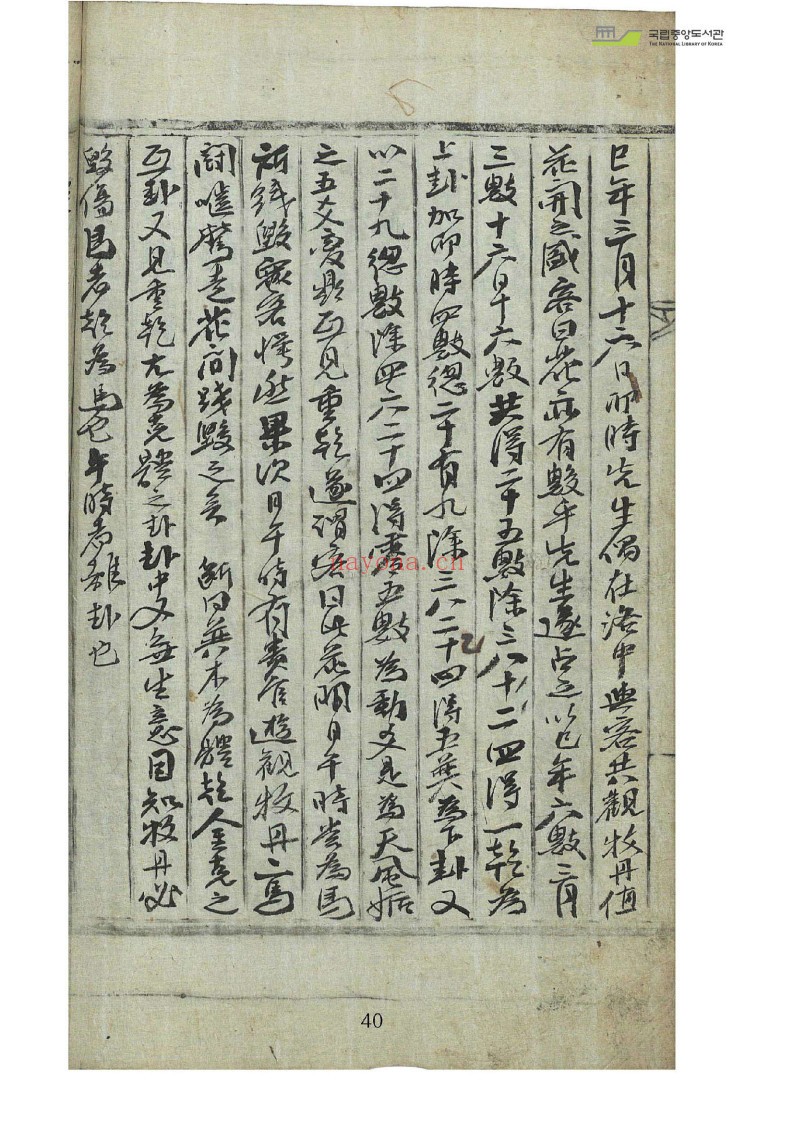 국립중앙도서관
THE NATIONAL LIBRARY OF KOREA
巳年三月十六日卯時先生偶在洛中與客共觀牧丹值
花開之盛客曰花亦有數乎先生遂占之以巳年六數三月
三數十六日十六數共得二十五數除三八十二四得一乾為
上卦加卯時四數總二十有九除三八二十四得五巽為下卦又
以二十九總數除四六二十四得零五數為動爻是為天風姤
之五爻變鼎互見重乾遂謂客曰此花明日午時當為馬
所踐毀衆客愕然果次日午時有貴官遊觀牧丹二馬
鬪嗑驚走花間踐毀之矣 斷曰巽木為體乾金克之
互卦又見重乾尤為克體之卦卦中又無生意固知牧丹必
毀傷馬者乾為馬也午時者離卦也
nayona.cn
40